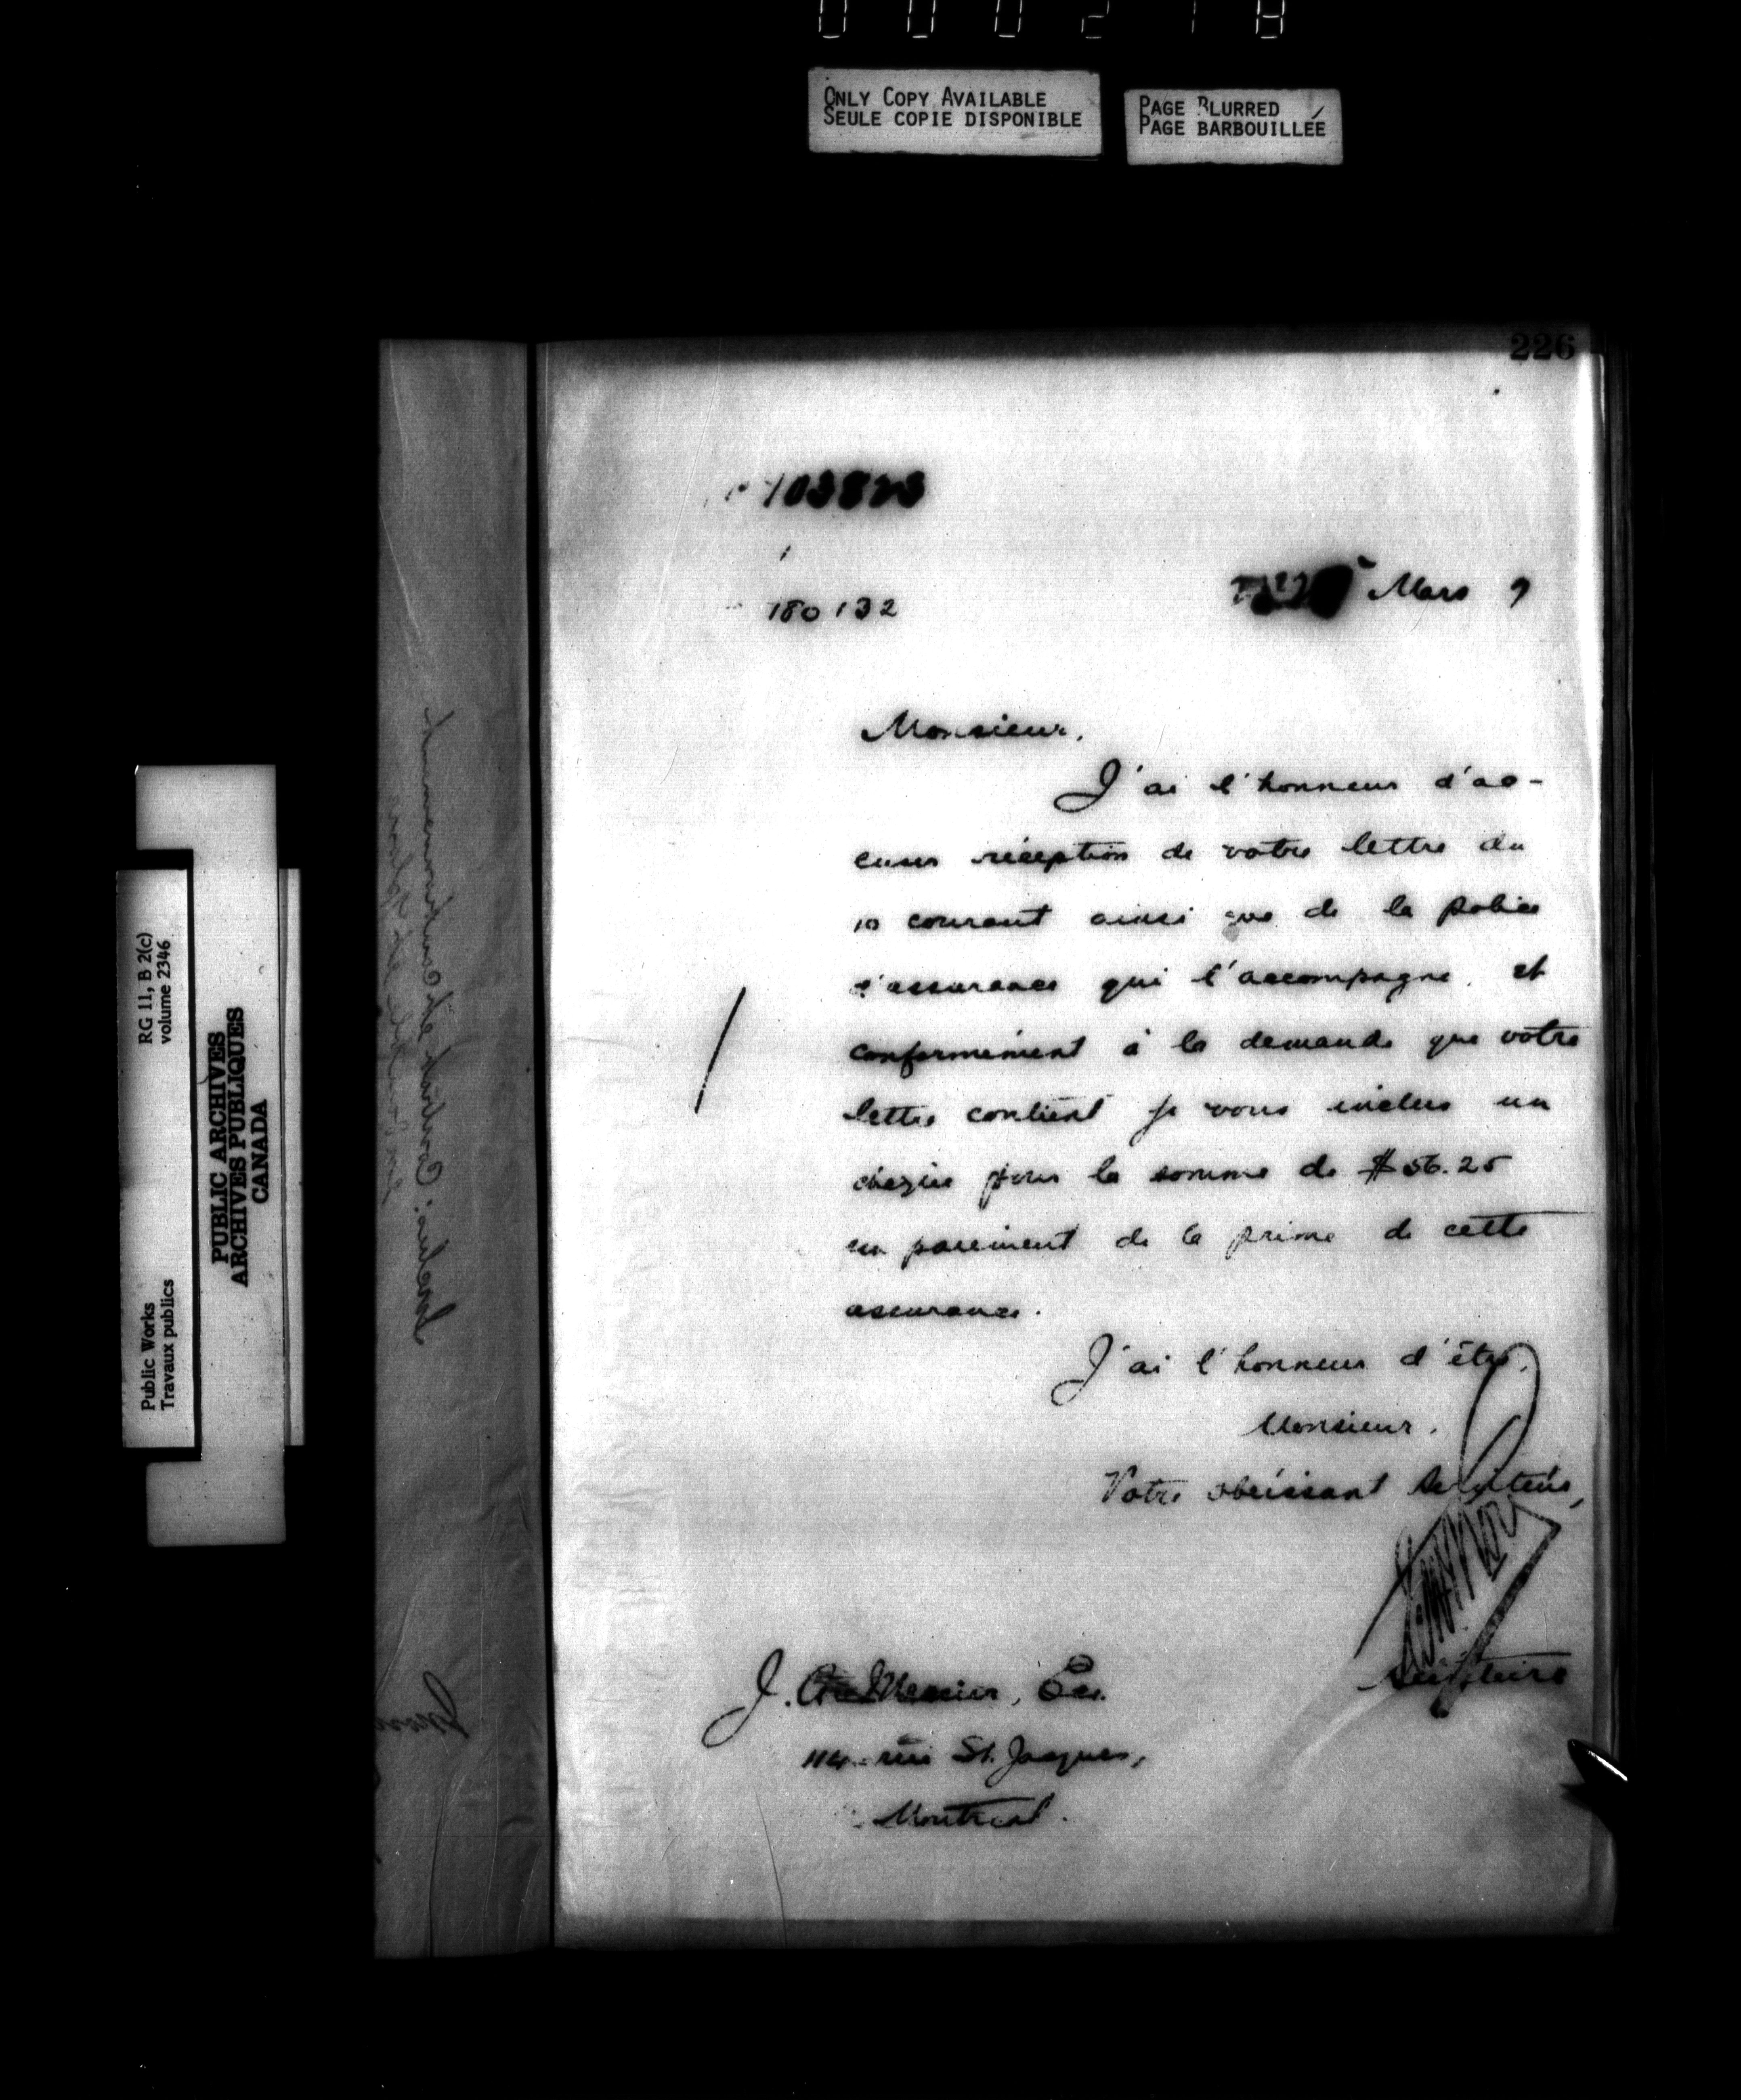 000218
ONLY COPY AVAILABLE
SEULE COPIE DISPONIBLE
PAGE BLURRED
PAGE BARBOUILLÉE
226
103823
180132
Mars 9
Monsieur,
J'ai l'honneur d'ac-
cuser réception de votre lettre du
10 courant ainsi que de la police
d'assurance qui l'accompagne, et
conformément à la demande que votre
lettre contient je vous inclus un
chèque pour la somme de $56.25
en paiement de la prime de cette
assurance.
J'ai l'honneur d'être,
Monsieur,
Votre obéissant Serviteur,
Secrétaire
J. Mercier, Ecr.
114 rue St. Jacques,
Montreal.
Public Works
Travaux publics
RG 11, B 2(c)
volume 2346
PUBLIC ARCHIVES
ARCHIVES PUBLIQUES
CANADA